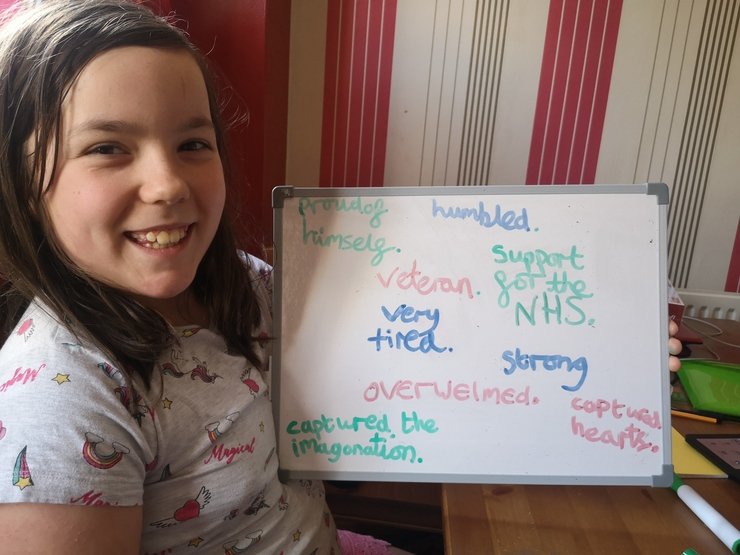 proud of
himself.
humbled.
support
for the
NHS.
veteran.
very
tired.
strong
overwelmed.
captured
hearts.
captured the
imagonation.
Magical